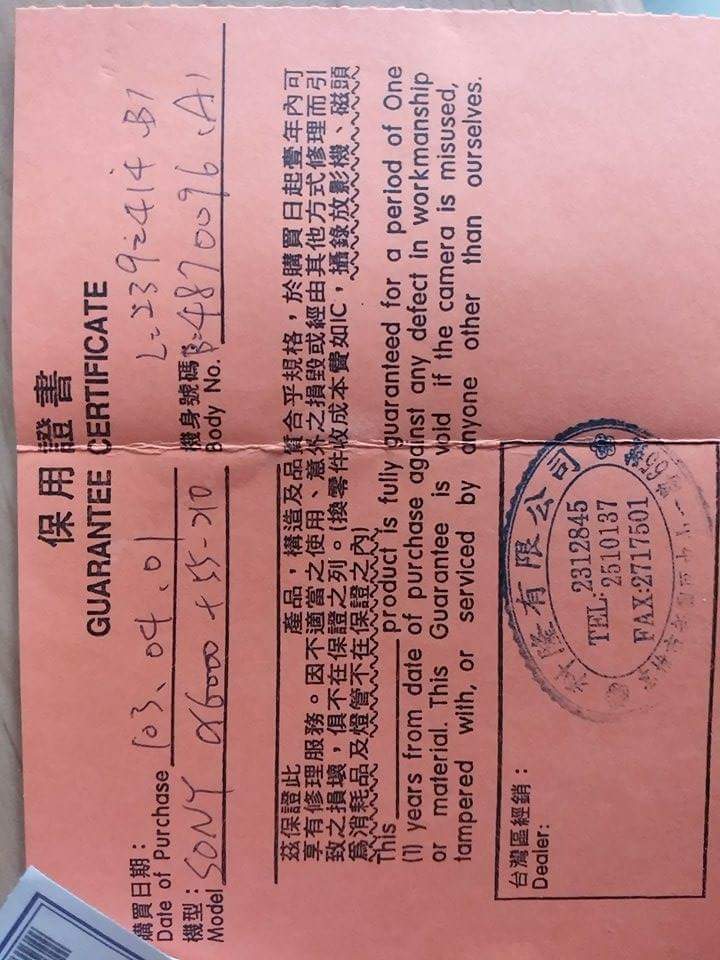 保用證書
GUARANTEE CERTIFICATE
購買日期：
Date of Purchase 103、04、01
L=2392414 B1
機型：
Model SONY α6000 + 55-210
機身號碼
Body No. B=4870096 (A)
茲保證此 產品，構造及品質合乎規格，於購買日起壹年內可
享有修理服務。因不適當之使用、意外之損毀或經由其他方式修理而引
致之損壞，俱不在保證之列。(換零件收成本費如IC，攝錄放影機、磁頭
為消耗品及燈管不在保證之內)
This product is fully guaranteed for a period of One
(1) years from date of purchase against any defect in workmanship
or material. This Guarantee is void if the camera is misused,
tampered with, or serviced by anyone other than ourselves.
台灣區經銷：
Dealer:
隆有限公司
TEL: 2312845
2510137
FAX:2717501